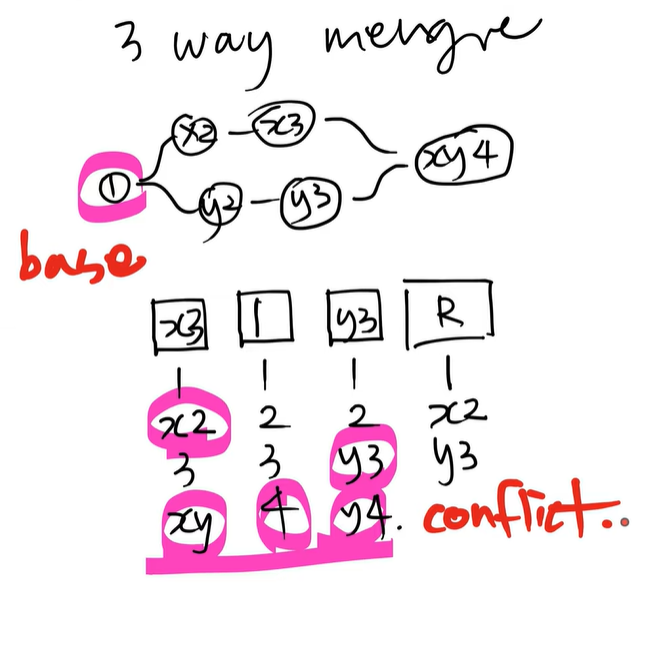 3 way mengre
x2 x3
1 xy4
y2 y3
base
x3 1 y3 R
1 1 1 1
x2 2 2 x2
3 3 y3 y3
xy 4 y4. conflict..